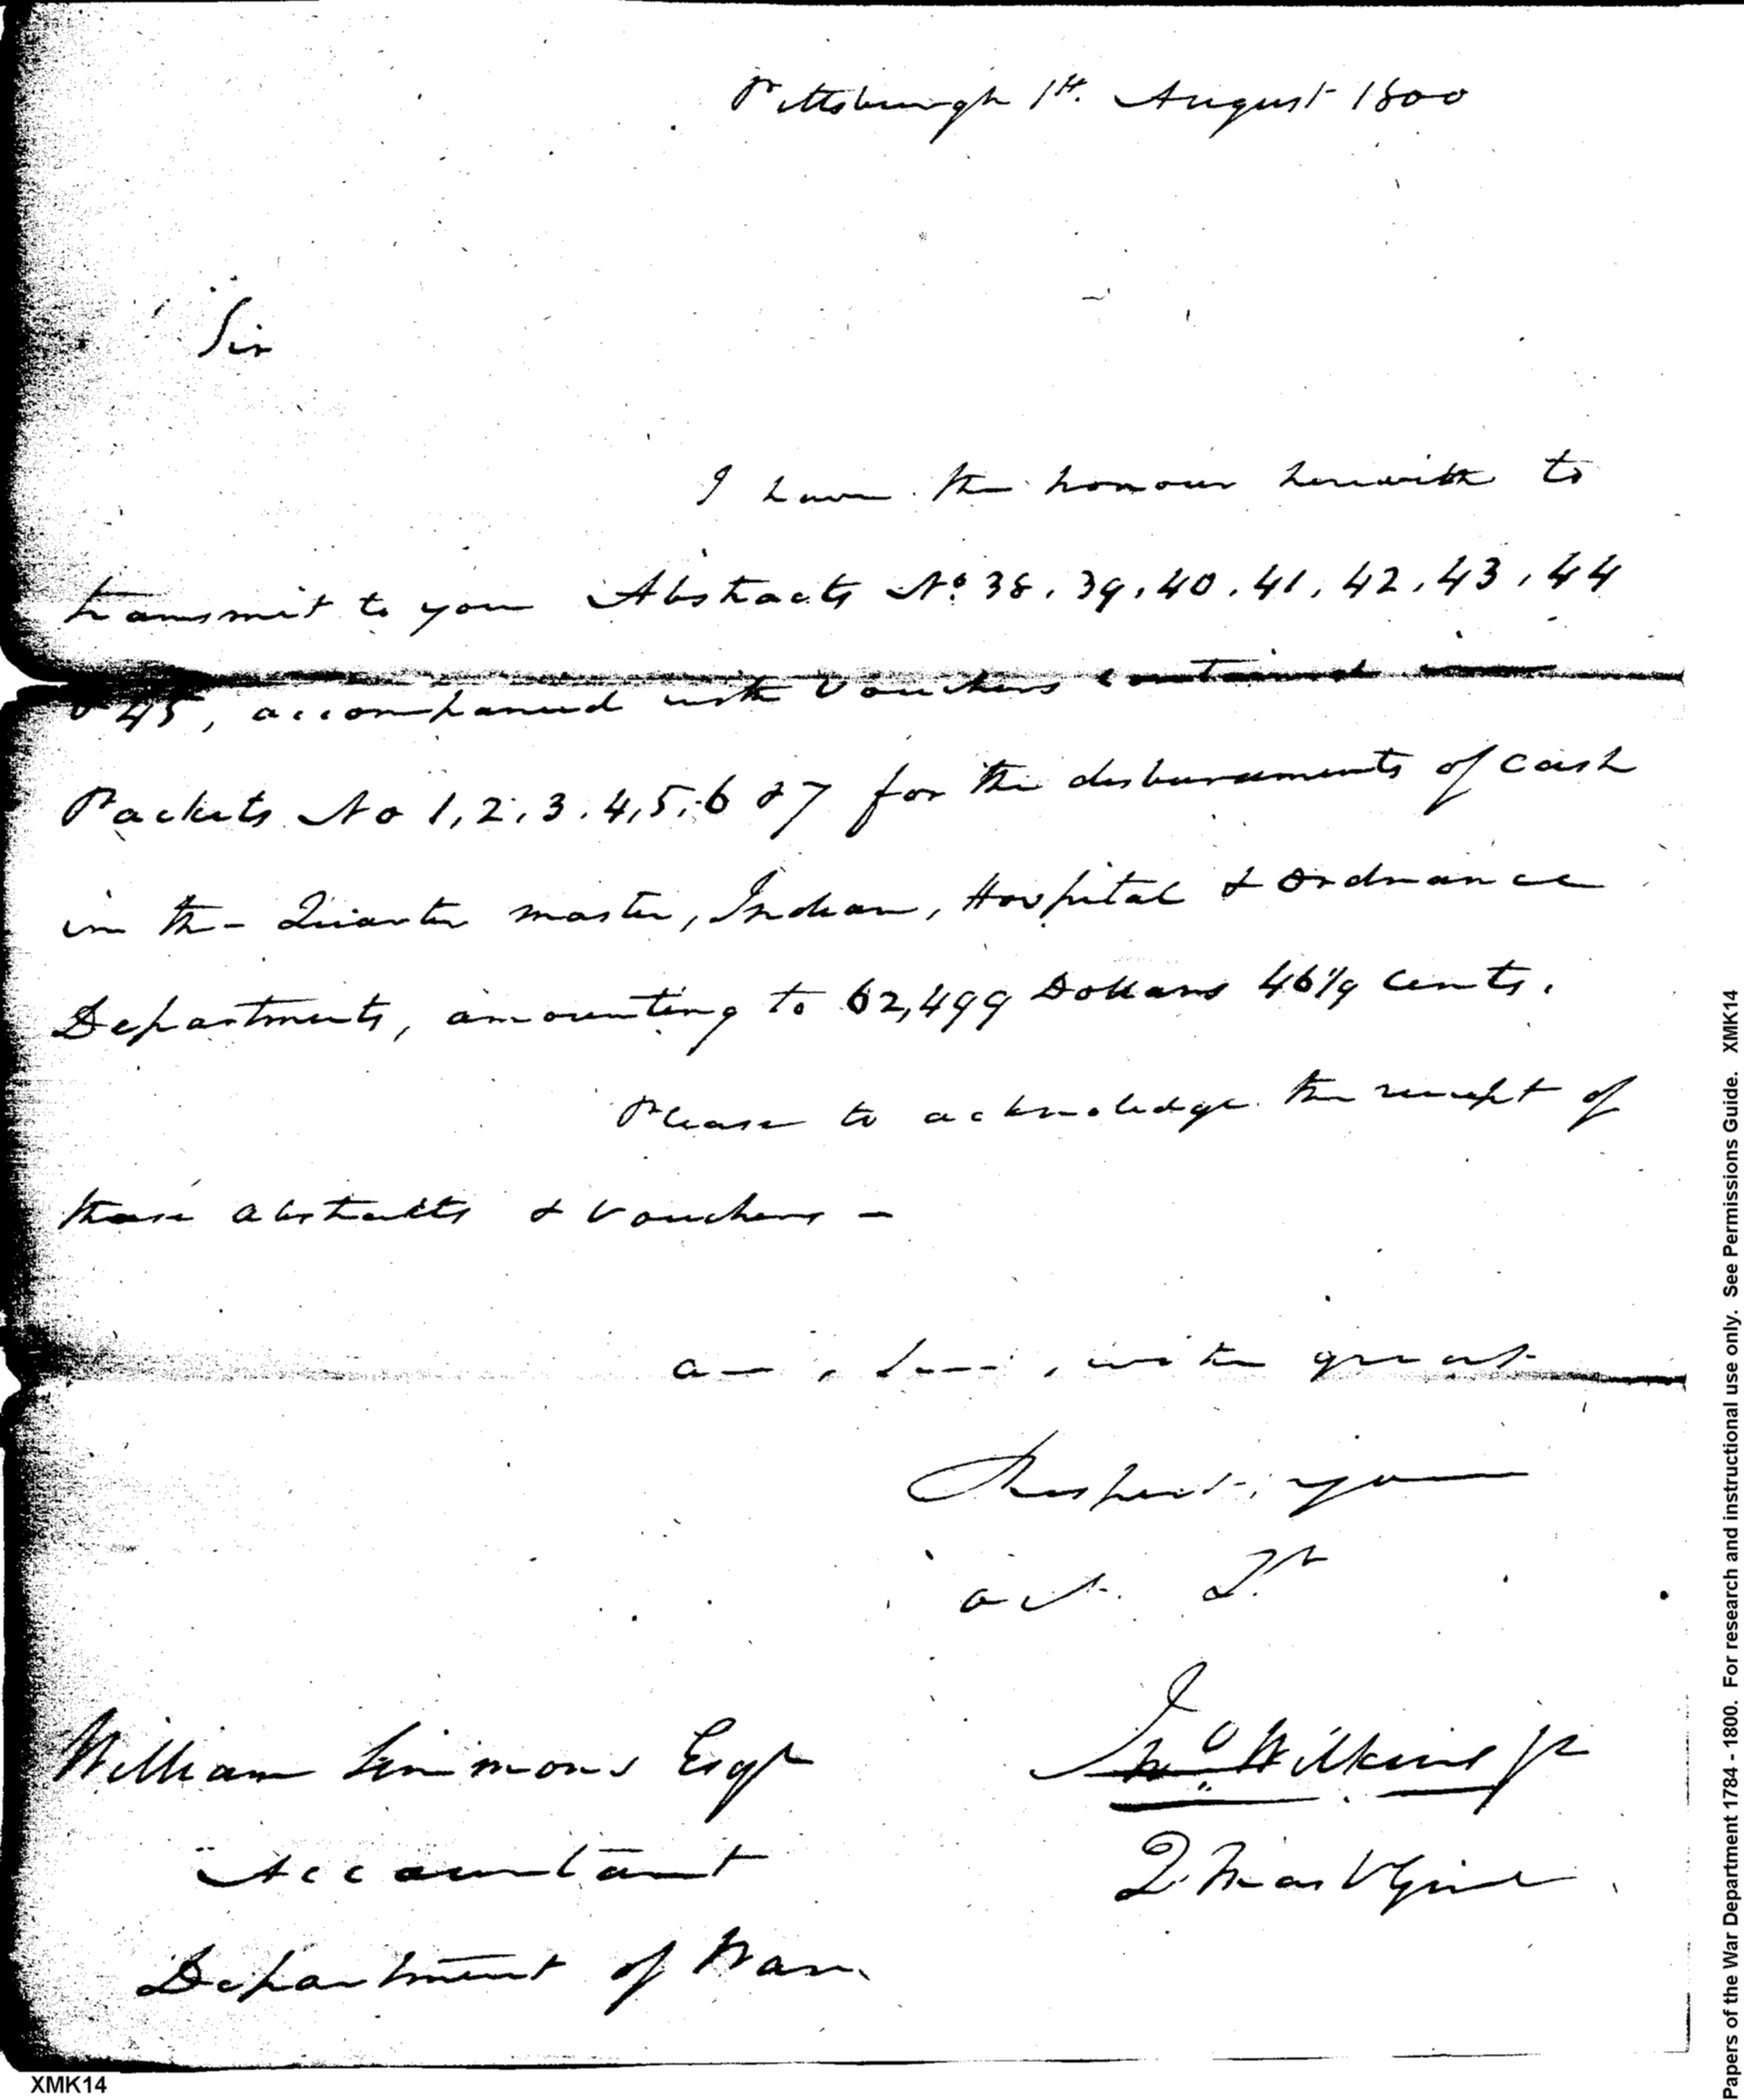 Pittsburgh 1st. August 1800
Sir
I have the honour herewith to
transmit to you Abstracts No. 38, 39, 40, 41, 42, 43, 44
& 45, accompanied with Vouchers contained in
Packets No 1, 2, 3, 4, 5, 6 & 7 for the disbursements of cash
in the Quarter master, Indian, Hospital & Ordnance
Departments, amounting to 62,499 Dollars 46 1/9 Cents.
Please to acknoledge the receipt of
these abstracts & Vouchers -
am, Sir, with great
Respect, your
Jno. Wilkins Jr
William Simmons Esqr
Q. Mas Genl
Accountant
Department of War.
XMK14
Papers of the War Department 1784 - 1800. For research and instructional use only. See Permissions Guide. XMK14